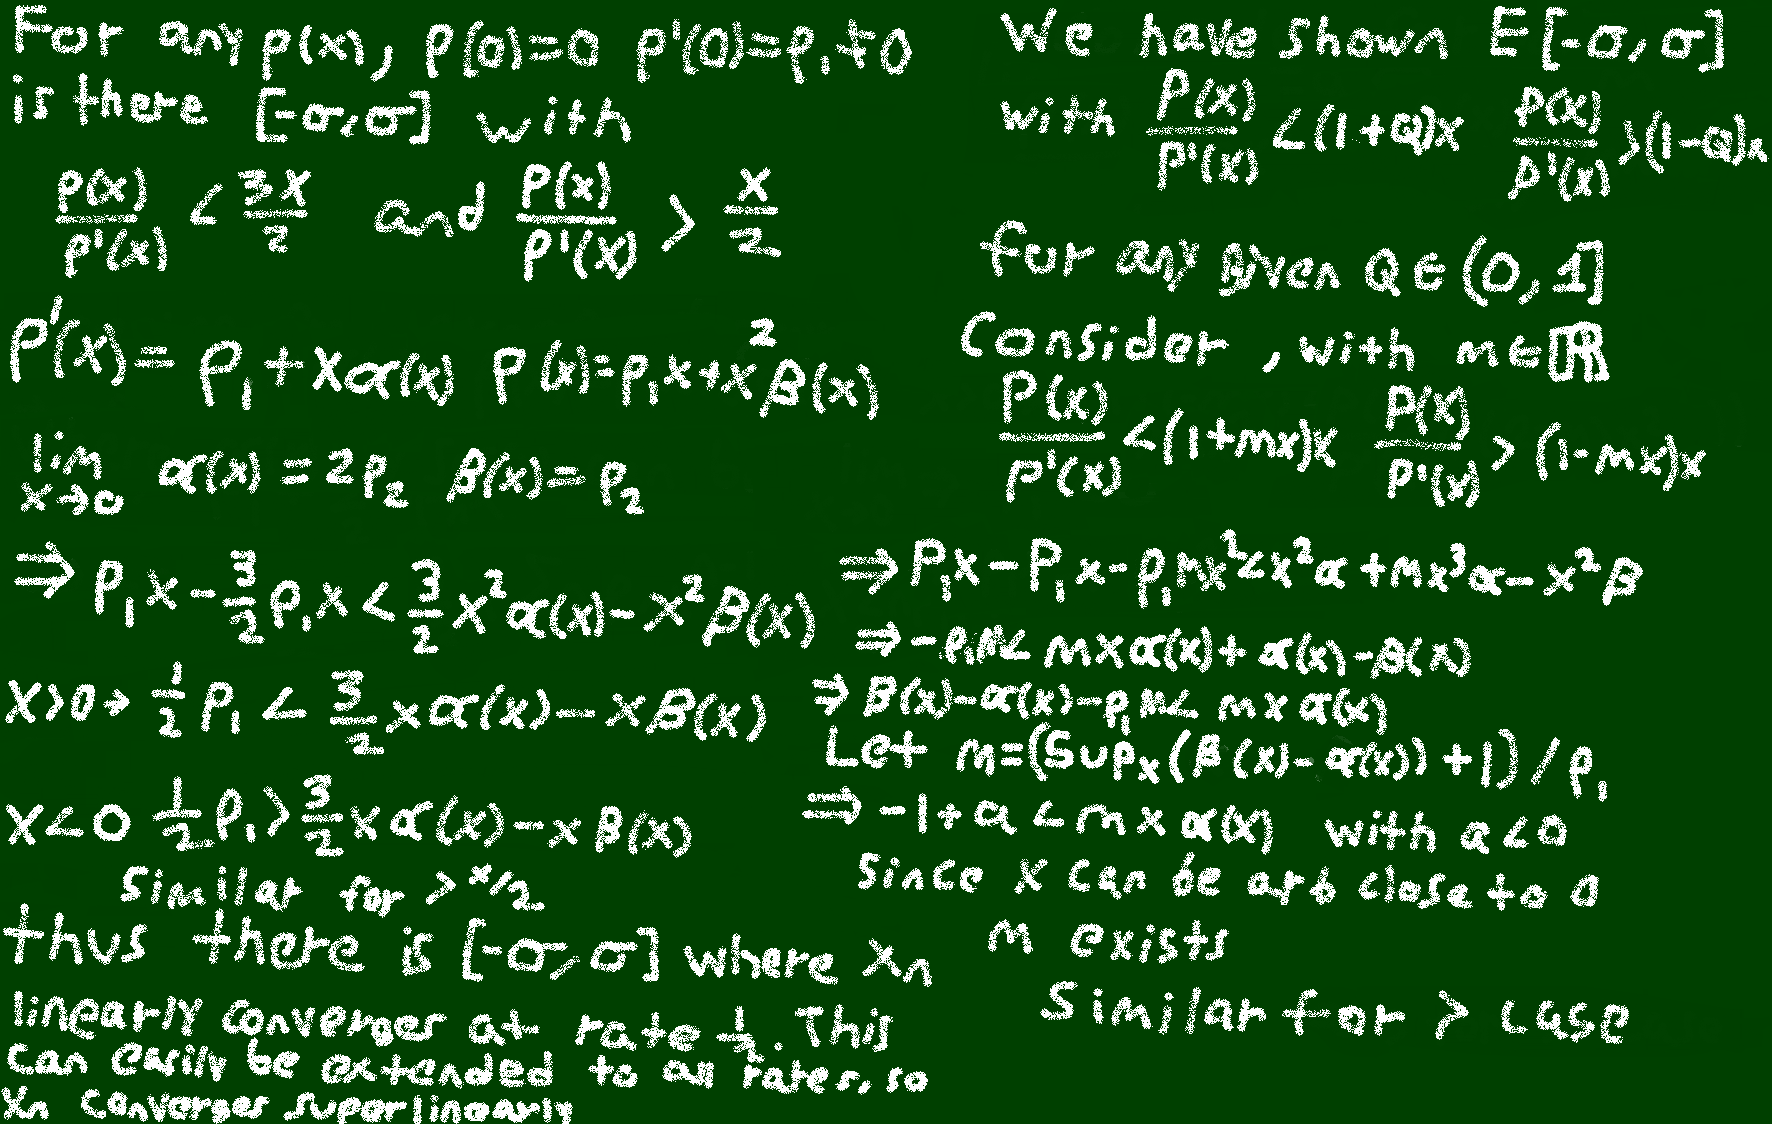 For any p(x), p(0)=0 p'(0)=p₁≠0
is there [-σ,σ] with
p(x)/p'(x) < 3x/2 and p(x)/p'(x) > x/2
p'(x)= p₁+xα(x) p(x)=p₁x+x²β(x)
lim x→0 α(x)=2p₂ β(x)=p₂
⇒ p₁x-3/2p₁x<3/2x²α(x)-x²β(x)
x>0→ 1/2p₁ < 3/2xα(x)-xβ(x)
x<0 1/2p₁>3/2xα(x)-xβ(x)
Similar for > x/2
thus there is [-σ,σ] where xₙ
linearly converges at rate 1/2. This
can easily be extended to all rates, so
xₙ converges superlinearly
We have shown E[-σ,σ]
with p(x)/p'(x) <(1+Q)x p(x)/p'(x) >(1-Q)x
for any given Q∈(0,1]
Consider, with m∈ℝ
p(x)/p'(x) <(1+mx)x p(x)/p'(x) > (1-mx)x
⇒ p₁x-p₁x-p₁mx²<x²α+mx³α-x²β
⇒ -p₁m< mxα(x)+α(x)-β(x)
⇒ β(x)-α(x)-p₁m< mxα(x)
Let m=(Supₓ(β(x)-α(x))+1)/p₁
⇒ -1+a<mxα(x) with a<0
Since x can be arb close to 0
m exists
Similar for > case